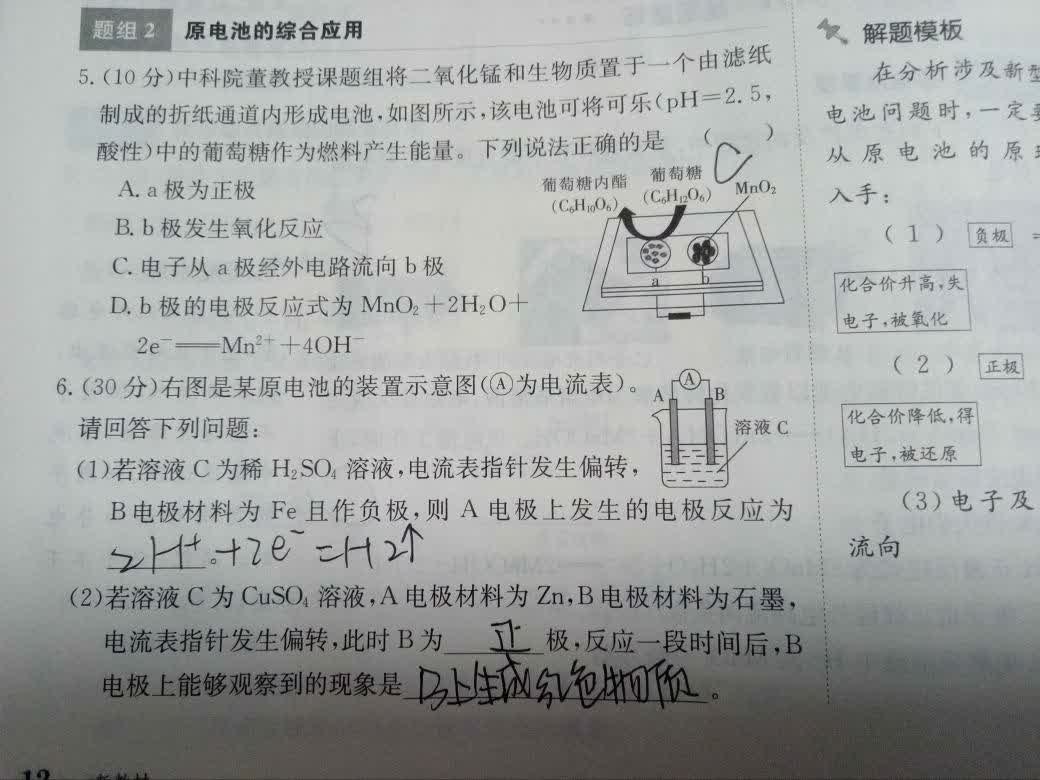 题组2 原电池的综合应用
5.(10分)中科院董教授课题组将二氧化锰和生物质置于一个由滤纸
制成的折纸通道内形成电池,如图所示,该电池可将可乐(pH=2.5,
酸性)中的葡萄糖作为燃料产生能量。下列说法正确的是 ( C )
A. a极为正极
B. b极发生氧化反应
C. 电子从a极经外电路流向b极
D. b极的电极反应式为MnO₂+2H₂O+
2e⁻══Mn²⁺+4OH⁻
葡萄糖内酯 葡萄糖
(C₆H₁₀O₆) (C₆H₁₂O₆) MnO₂
a b
6.(30分)右图是某原电池的装置示意图(Ⓐ为电流表)。
请回答下列问题:
A Ⓐ B
溶液C
(1)若溶液C为稀H₂SO₄溶液,电流表指针发生偏转,
B电极材料为Fe且作负极,则A电极上发生的电极反应为
2H⁺+2e⁻=H2↑。
(2)若溶液C为CuSO₄溶液,A电极材料为Zn,B电极材料为石墨,
电流表指针发生偏转,此时B为 正 极,反应一段时间后,B
电极上能够观察到的现象是 B上生成红色物质。
解题模板
在分析涉及新型
电池问题时,一定要
从原电池的原
入手:
(1) 负极
化合价升高,失
电子,被氧化
(2) 正极
化合价降低,得
电子,被还原
(3)电子及
流向
12